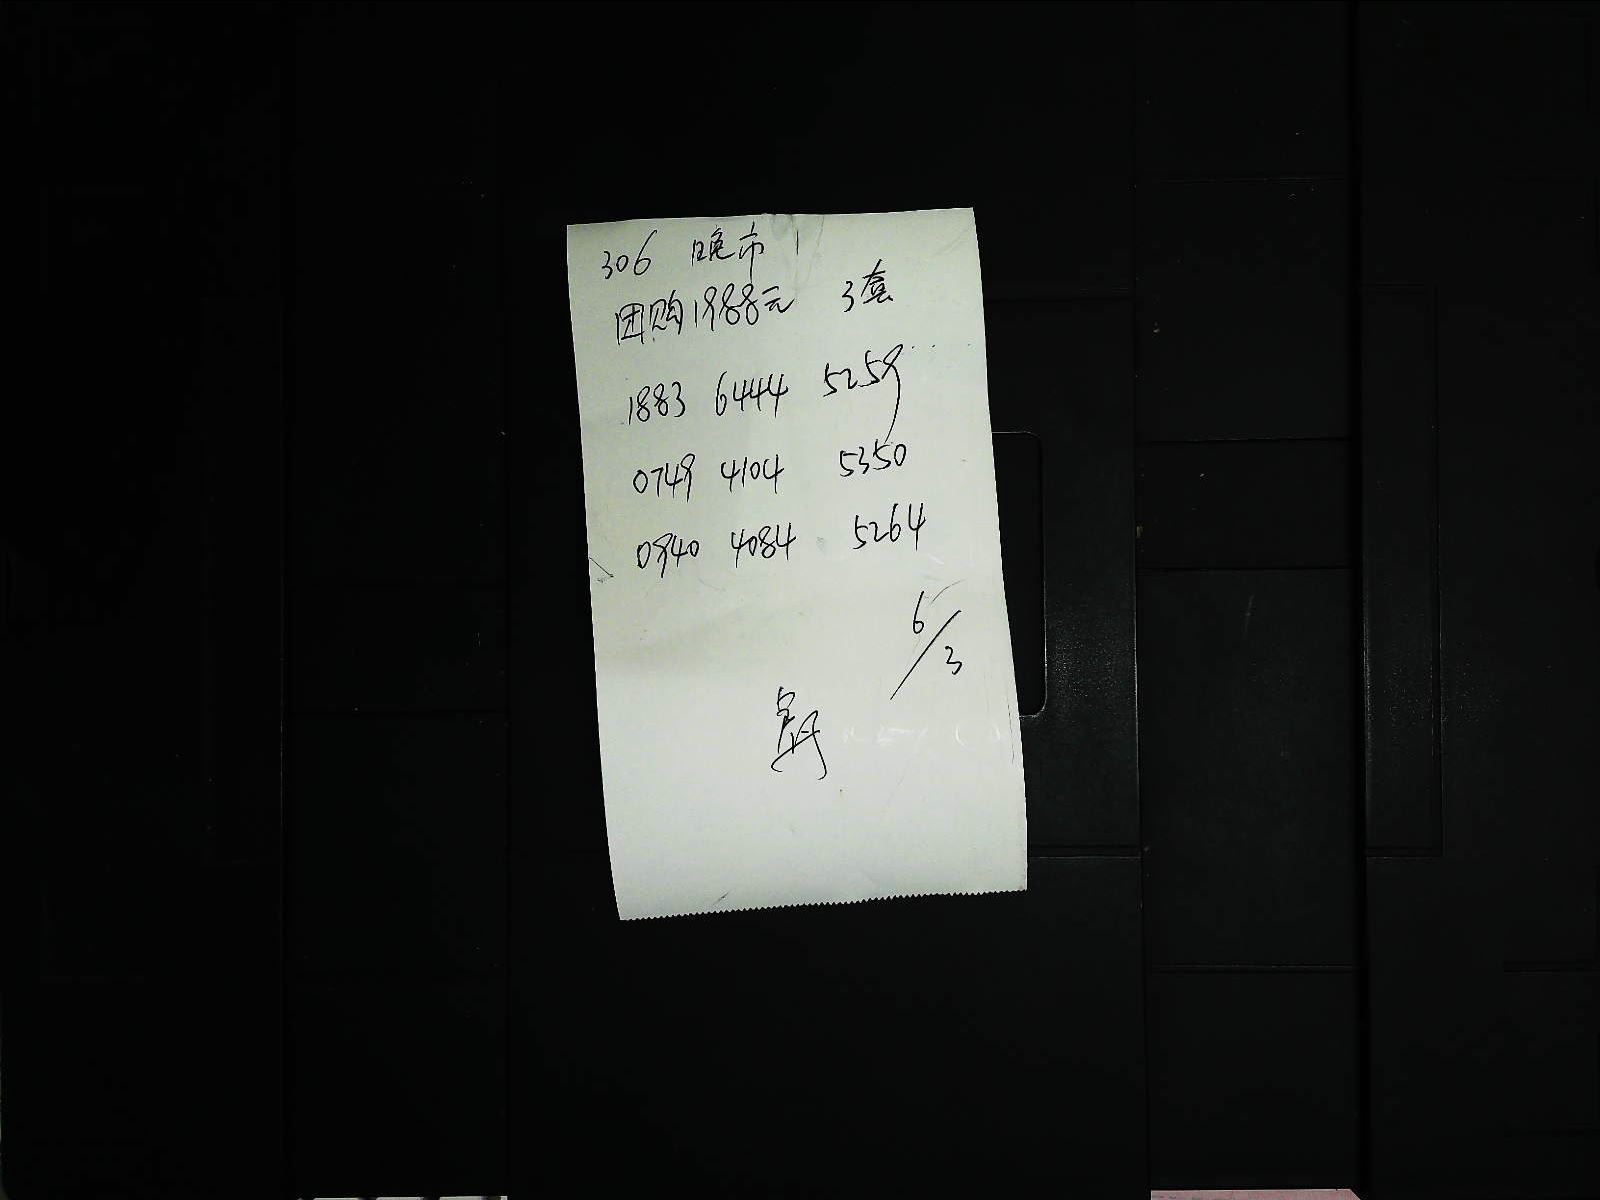 306 晚市
团购1988元 3套
1883 6444 5259
0749 4104 5350
0940 4084 5264
6/3